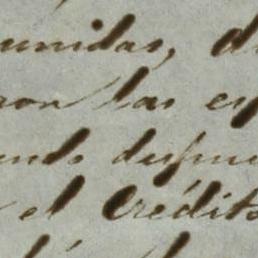 unidas, d
ron las es
endo despue
el Crédito